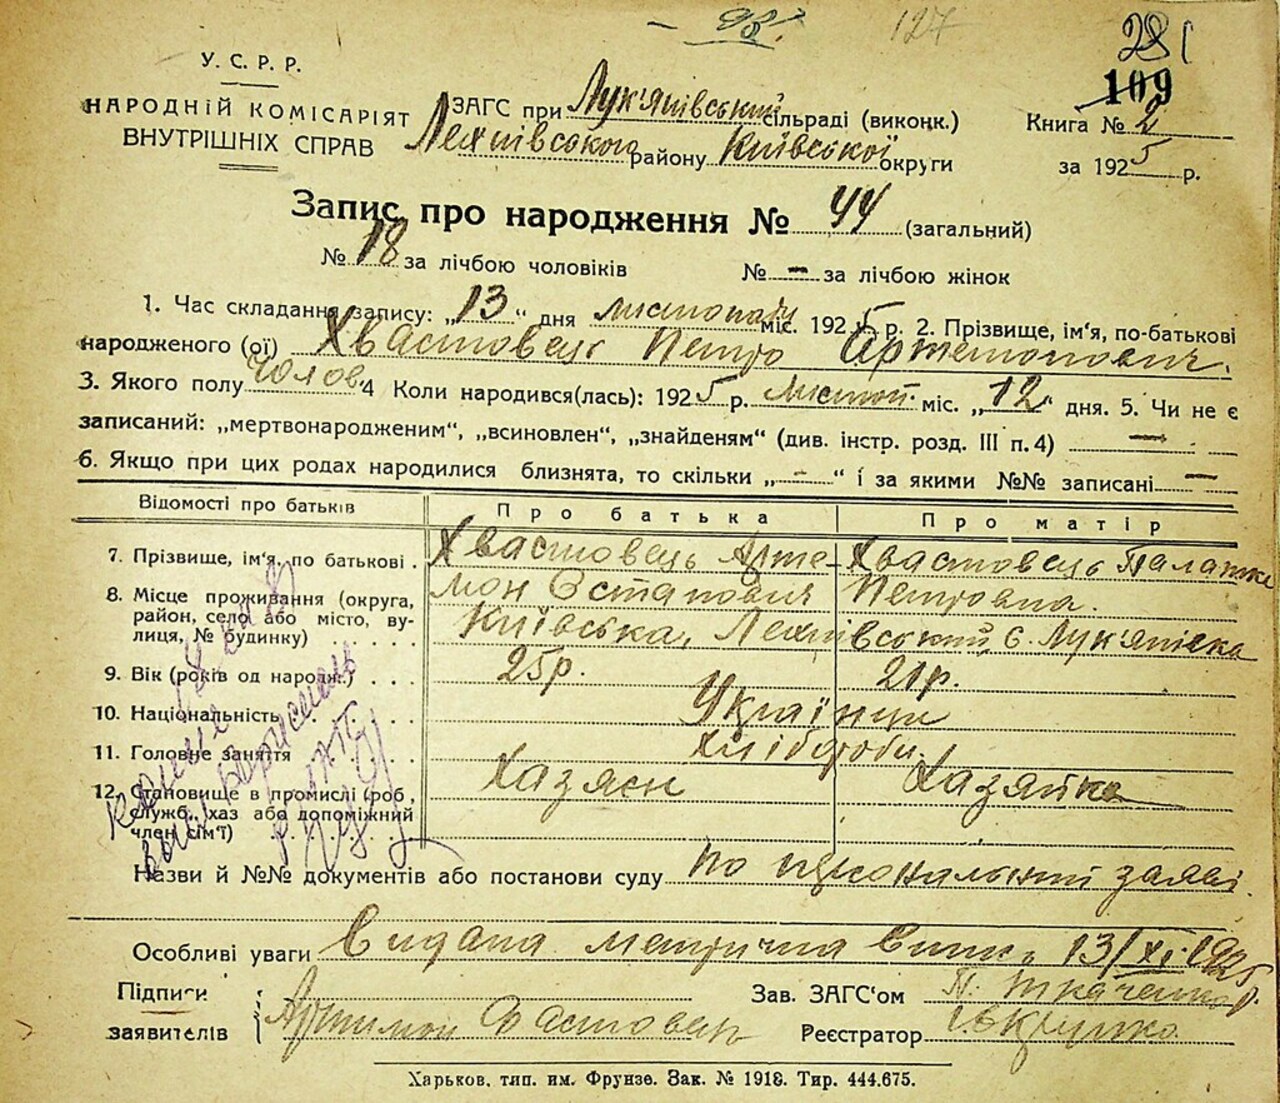 98. 127 281
У. С. Р. Р. 109
НАРОДНІЙ КОМІСАРІЯТ ЗАГС при Лук'янівський сільраді (виконк.) Книга № 2
ВНУТРІШНІХ СПРАВ Лехнівського району Київської округи за 1925 р.
Запис про народження № 44 (загальний)
№ 18 за лічбою чоловіків № — за лічбою жінок
1. Час складання запису: „13“ дня листопаду міс. 1925 р. 2. Прізвище, ім'я, по-батькові
народженого (ої) Хвастовець Петро Артемонович.
3. Якого полу Чолов. 4 Коли народився(лась): 1925 р. листоп. міс. „12“ дня. 5. Чи не є
записаний: „мертвонародженим“, „всиновлен“, „знайденям“ (див. інстр. розд. III п. 4) —
6. Якщо при цих родах народилися близнята, то скільки „—“ і за якими №№ записані —
Відомості про батьків Про батька Про матір
7. Прізвище, ім'я, по батькові . Хвастовець Арте- Хвастовець Палажка
8. Місце проживання (округа, мон Остапович Петровна.
район, село або місто, ву-
лиця, № будинку) . . . . Київська, Лехнівський, с. Лук'янівка
9. Вік (років од народж.) . . . 25р. 21р.
10. Національність . . . . Українци
11. Головне заняття . . . . Хлібороби
12. Становище в промислі (роб., Хазяєн Хазяйка
служб., хаз або допоміжний
член сім'ї) . . . .
Назви й №№ документів або постанови суду по заяві.
Особливі уваги Видана метрична випис 13/XI.1925р.
Підписи Зав. ЗАГС'ом П. Ткаченко
заявителів Артимон Фастовець Реєстратор
Харьков, тип. им. Фрунзе. Зак. № 1918. Тир. 444.675.